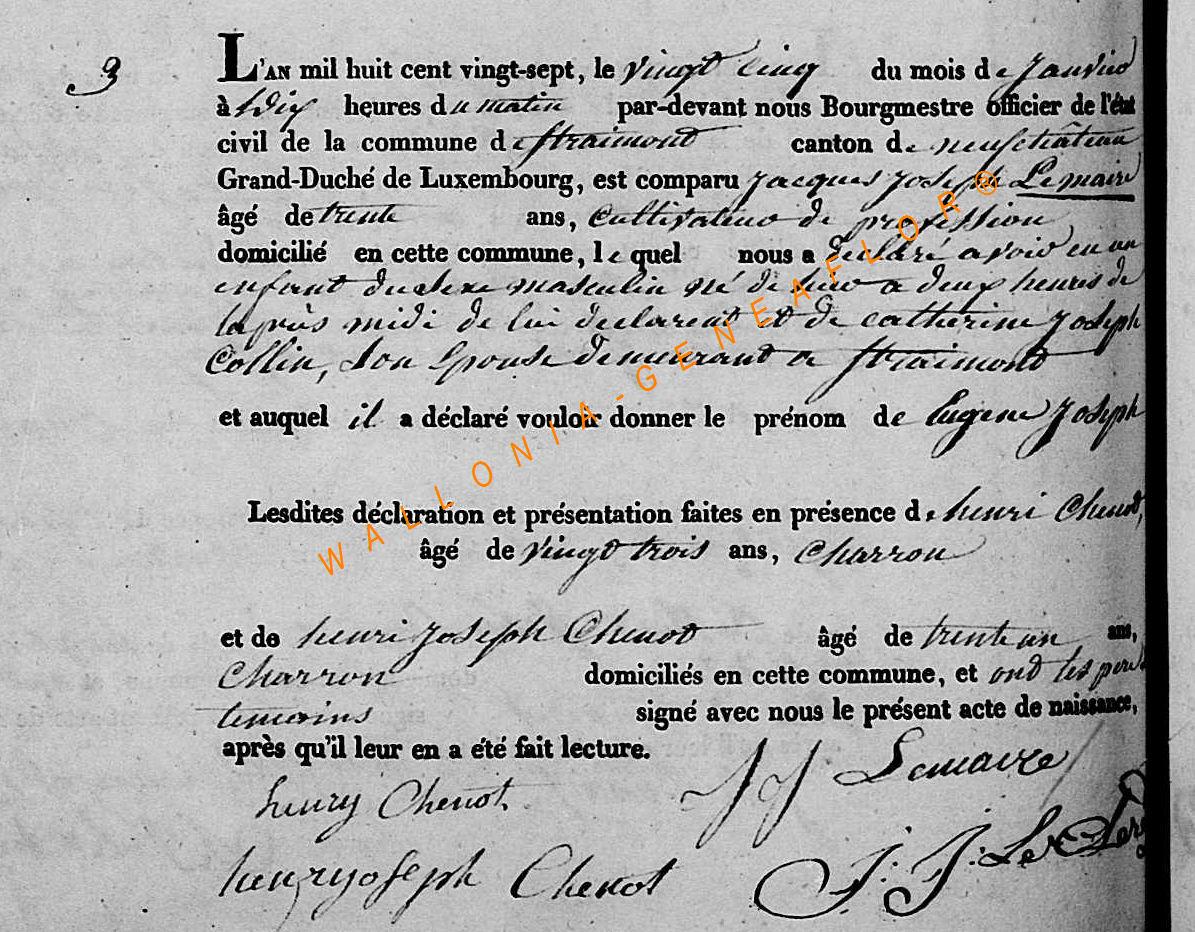 3
L'AN mil huit cent vingt-sept, le vingt cinq du mois de Janvier
à dix heures du matin par-devant nous Bourgmestre officier de l'état
civil de la commune de Straimont canton de neufchateau
Grand-Duché de Luxembourg, est comparu Jacques Joseph Lemaire
âgé de trente ans, Cultivateur de profession
domicilié en cette commune, lequel nous a declaré avoir eu un
enfant du sexe masculin né di hier a deux heures de
laprès midi de lui declarent et de catherine Joseph
Collin, son Epouse demeurant a Straimont
et auquel il a déclaré vouloir donner le prénom de Eugene Joseph
Lesdites déclaration et présentation faites en présence de henri Chenot,
âgé de vingt trois ans, Charron
et de henri Joseph Chenot âgé de trente un ans,
Charron domiciliés en cette commune, et ont les pere
temoins signé avec nous le présent acte de naissance,
après qu'il leur en a été fait lecture.
JJ Lemaire
henry Chenot
J: J: Le Clerc
henry joseph Chenot
WALLONIA-GENEAFLOR®